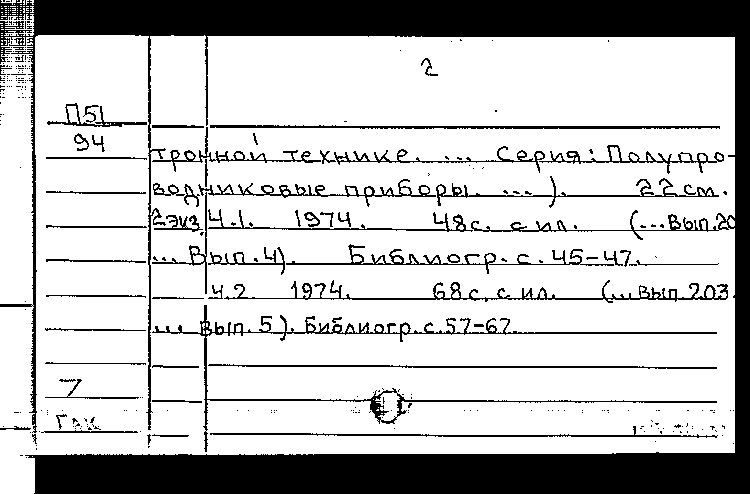 2
П51
94
тронной технике. ... Серия: Полупро-
водниковые приборы. ...). 22 см.
2экз. Ч.1. 1974. 48с. с ил. (...Вып.20
... Вып.4). Библиогр. с. 45-47.
Ч.2. 1974. 68с. с ил. (...Вып.203.
... Вып. 5). Библиогр. с. 57-67.
7
ГАК